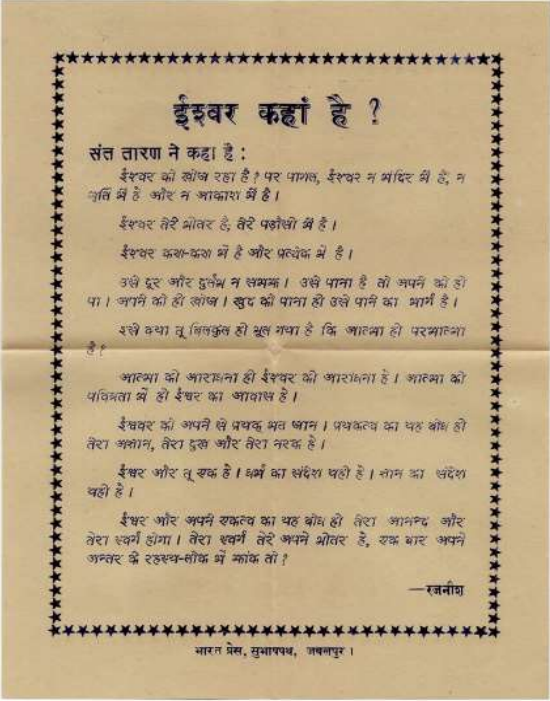 ईश्वर कहां है ?
संत तारण ने कहा है :
ईश्वर को खोज रहा है ? पर पागल, ईश्वर न मंदिर में है, न
मूर्ति में है और न आकाश में है ।
ईश्वर तेरे भीतर है, तेरे पड़ौसी में है ।
ईश्वर कण-कण में है और प्रत्येक में है ।
उसे दूर और दुर्लभ न समझ । उसे पाना है तो अपने को ही
पा । अपने को ही खोज । खुद को पाना ही उसे पाने का मार्ग है ।
इसे क्या तू बिलकुल ही भूल गया है कि आत्मा ही परमात्मा
है ?
आत्मा की आराधना ही ईश्वर की आराधना है । आत्मा की
पवित्रता में ही ईश्वर का आवास है ।
ईश्ववर को अपने से प्रथक् मत जान । प्रथकत्व का यह बोध ही
तेरा अज्ञान, तेरा दुख और तेरा नरक है ।
ईश्वर और तू एक है । धर्म का संदेश यही है । ज्ञान का संदेश
यही है ।
ईश्वर और अपने एकत्व का यह बोध ही तेरा आनन्द और
तेरा स्वर्ग होगा । तेरा स्वर्ग तेरे अपने भीतर है, एक बार अपने
अन्तर के रहस्य-लोक में झांक तो ?
—रजनीश
भारत प्रेस, सुभाषपथ, जबलपुर ।